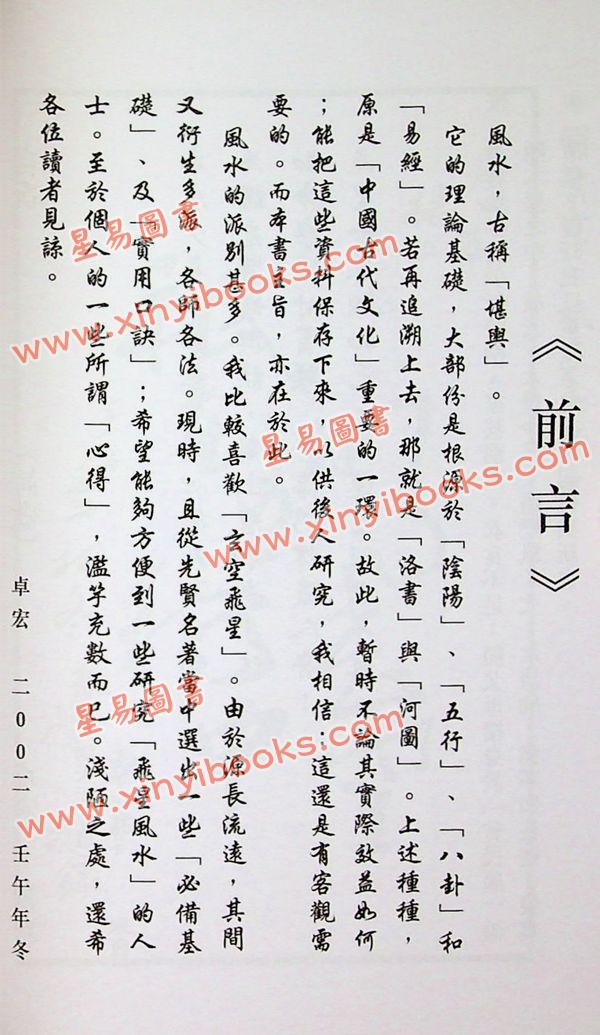 《前言》
風水，古稱「堪輿」。
它的理論基礎，大部份是根源於「陰陽」、「五行」、「八卦」和
「易經」。若再追溯上去，那就是「洛書」與「河圖」。上述種種，
原是「中國古代文化」重要的一環。故此，暫時不論其實際效益如何
；能把這些資料保存下來，以供後人研究，我相信；這還是有客觀需
要的。而本書主旨，亦在於此。
風水的派別甚多。我比較喜歡「玄空飛星」。由於源長流遠，其間
又衍生多派，各師各法。現時，且從先賢名著當中選出一些「必備基
礎」、及「實用口訣」；希望能夠方便到一些研究「飛星風水」的人
士。至於個人的一些所謂「心得」，濫竽充數而已。淺陋之處，還希
各位讀者見諒。
卓宏 二00二 壬午年冬
星易圖書
www.xinyibooks.com
星易圖書
www.xinyibooks.com
星易圖書
www.xinyibooks.com